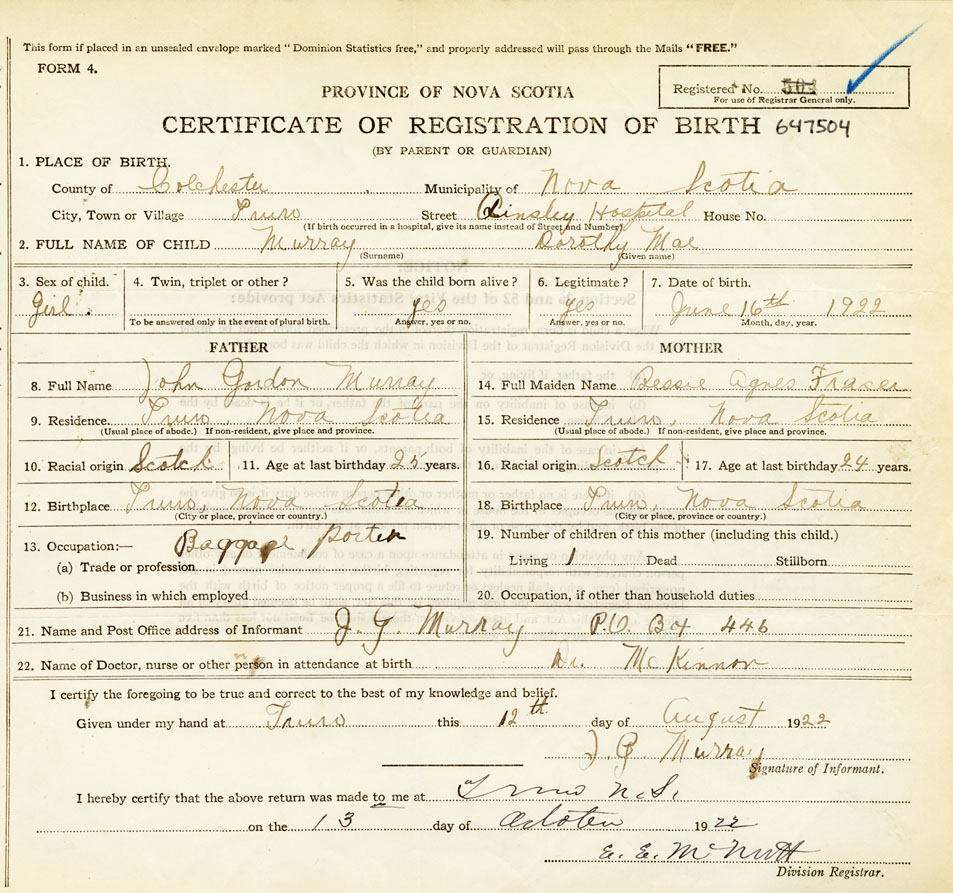 This form if placed in an unsealed envelope marked "Dominion Statistics free," and properly addressed will pass through the Mails "FREE."
FORM 4.
Registered No. 503
For use of Registrar General only.
PROVINCE OF NOVA SCOTIA
CERTIFICATE OF REGISTRATION OF BIRTH 647504
(BY PARENT OR GUARDIAN)
1. PLACE OF BIRTH.
County of Colchester Municipality of Nova Scotia
City, Town or Village Truro Street Ainsley Hospital House No.
(If birth occurred in a hospital, give its name instead of Street and Number)
2. FULL NAME OF CHILD Murray Dorothy Mae
(Surname) (Given name)
3. Sex of child. 4. Twin, triplet or other? 5. Was the child born alive? 6. Legitimate? 7. Date of birth.
Girl. yes yes June 16th 1922
To be answered only in the event of plural birth. Answer, yes or no. Answer, yes or no. Month, day, year.
FATHER
8. Full Name John Gordon Murray
9. Residence Truro, Nova Scotia
(Usual place of abode.) If non-resident, give place and province.
10. Racial origin Scotch 11. Age at last birthday 25 years.
12. Birthplace Truro, Nova Scotia
(City or place, province or country.)
13. Occupation:— Baggage Porter
(a) Trade or profession
(b) Business in which employed
MOTHER
14. Full Maiden Name Bessie Agnes Fraser
15. Residence Truro, Nova Scotia
(Usual place of abode.) If non-resident, give place and province.
16. Racial origin Scotch 17. Age at last birthday 24 years.
18. Birthplace Truro, Nova Scotia
(City or place, province or country.)
19. Number of children of this mother (including this child.)
Living 1 Dead Stillborn
20. Occupation, if other than household duties
21. Name and Post Office address of Informant J. G. Murray P.O. Box 446
22. Name of Doctor, nurse or other person in attendance at birth Dr. McKinnon
I certify the foregoing to be true and correct to the best of my knowledge and belief.
Given under my hand at Truro this 12th day of August 1922
J. G. Murray
Signature of Informant.
I hereby certify that the above return was made to me at Truro N.S.
on the 13 day of October 1922
E. E. McNutt
Division Registrar.